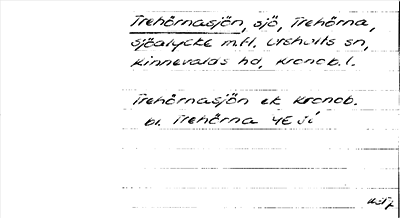 Trehörnasjön, sjö, Trehörna,
sjöalycke m.fl. Urshults sn,
Kinnevalds hd, Kronob.l.
Trehörnasjön ek Kronob.
bl. Trehörna 4E ji